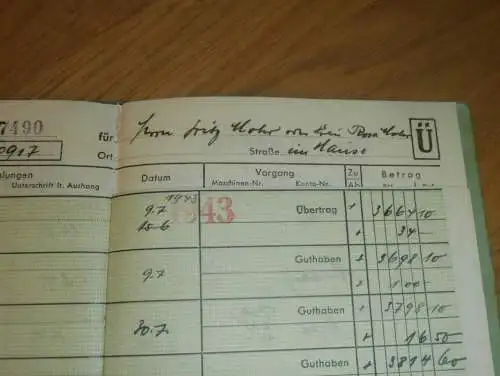 7490
für Herrn Fritz Mohr von Frau Rosa Mohr Ü
0917
Ort Straße im Hause
lungen Datum Vorgang Zu Betrag
Unterschrift lt. Aushang Maschinen-Nr. Konto-Nr. Ab
1943
9.7. 1943 Übertrag + 3664 10
25.6 + 34 -
Guthaben + 3698 10
9.7. + 100 -
Guthaben + 3798 10
30.7. + 16 50
Guthaben + 3814 60